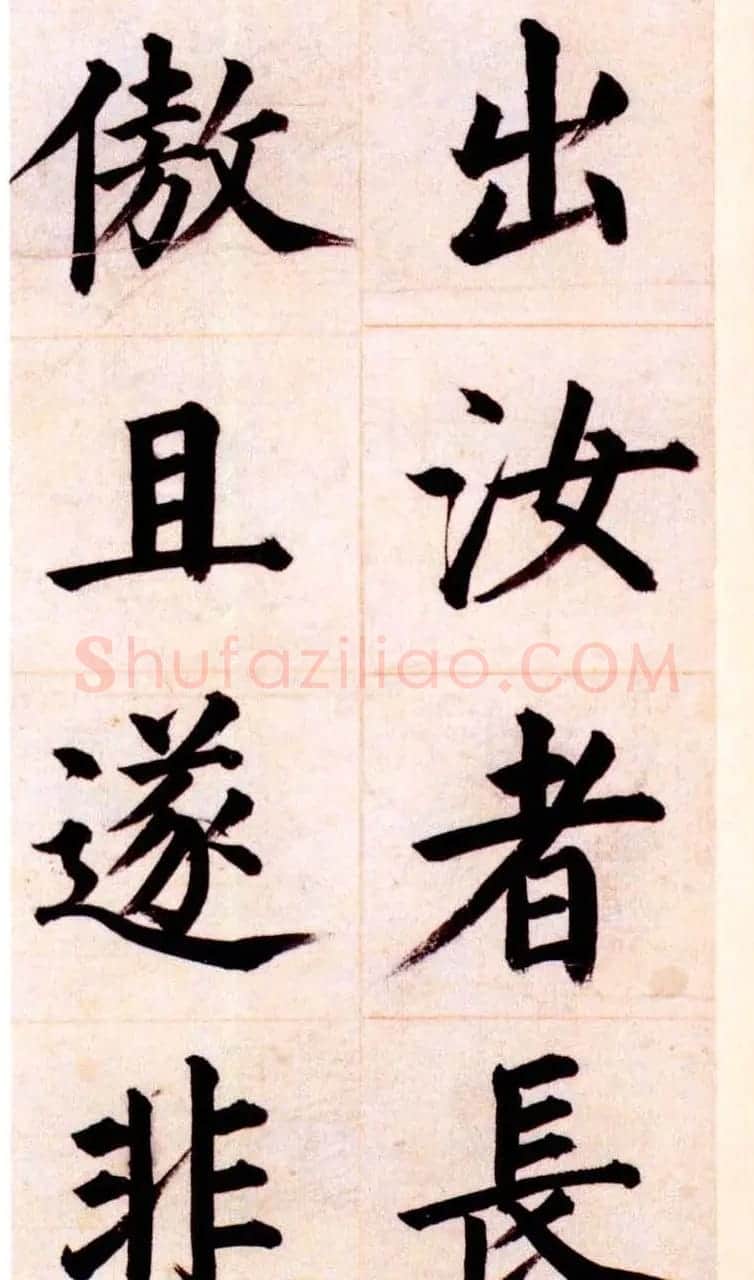 出汝者長
傲且遂非
Shufaziliao.COM